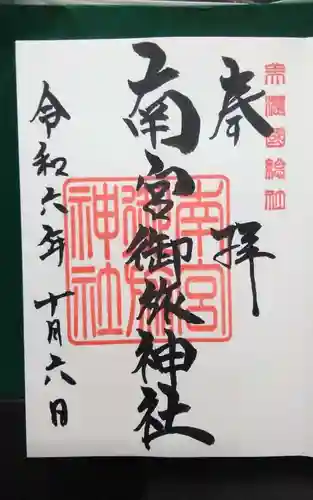 美濃國総社
奉拝
南宮御旅神社
南宮
御旅
神社
令和六年十月六日